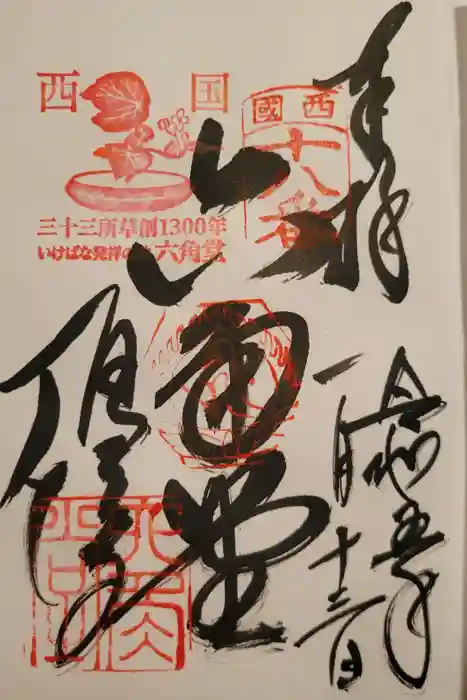 奉拝
令和五年
一月十三日
西國
十八番
六角堂
西国
三十三所草創1300年
いけばな発祥の地 六角堂